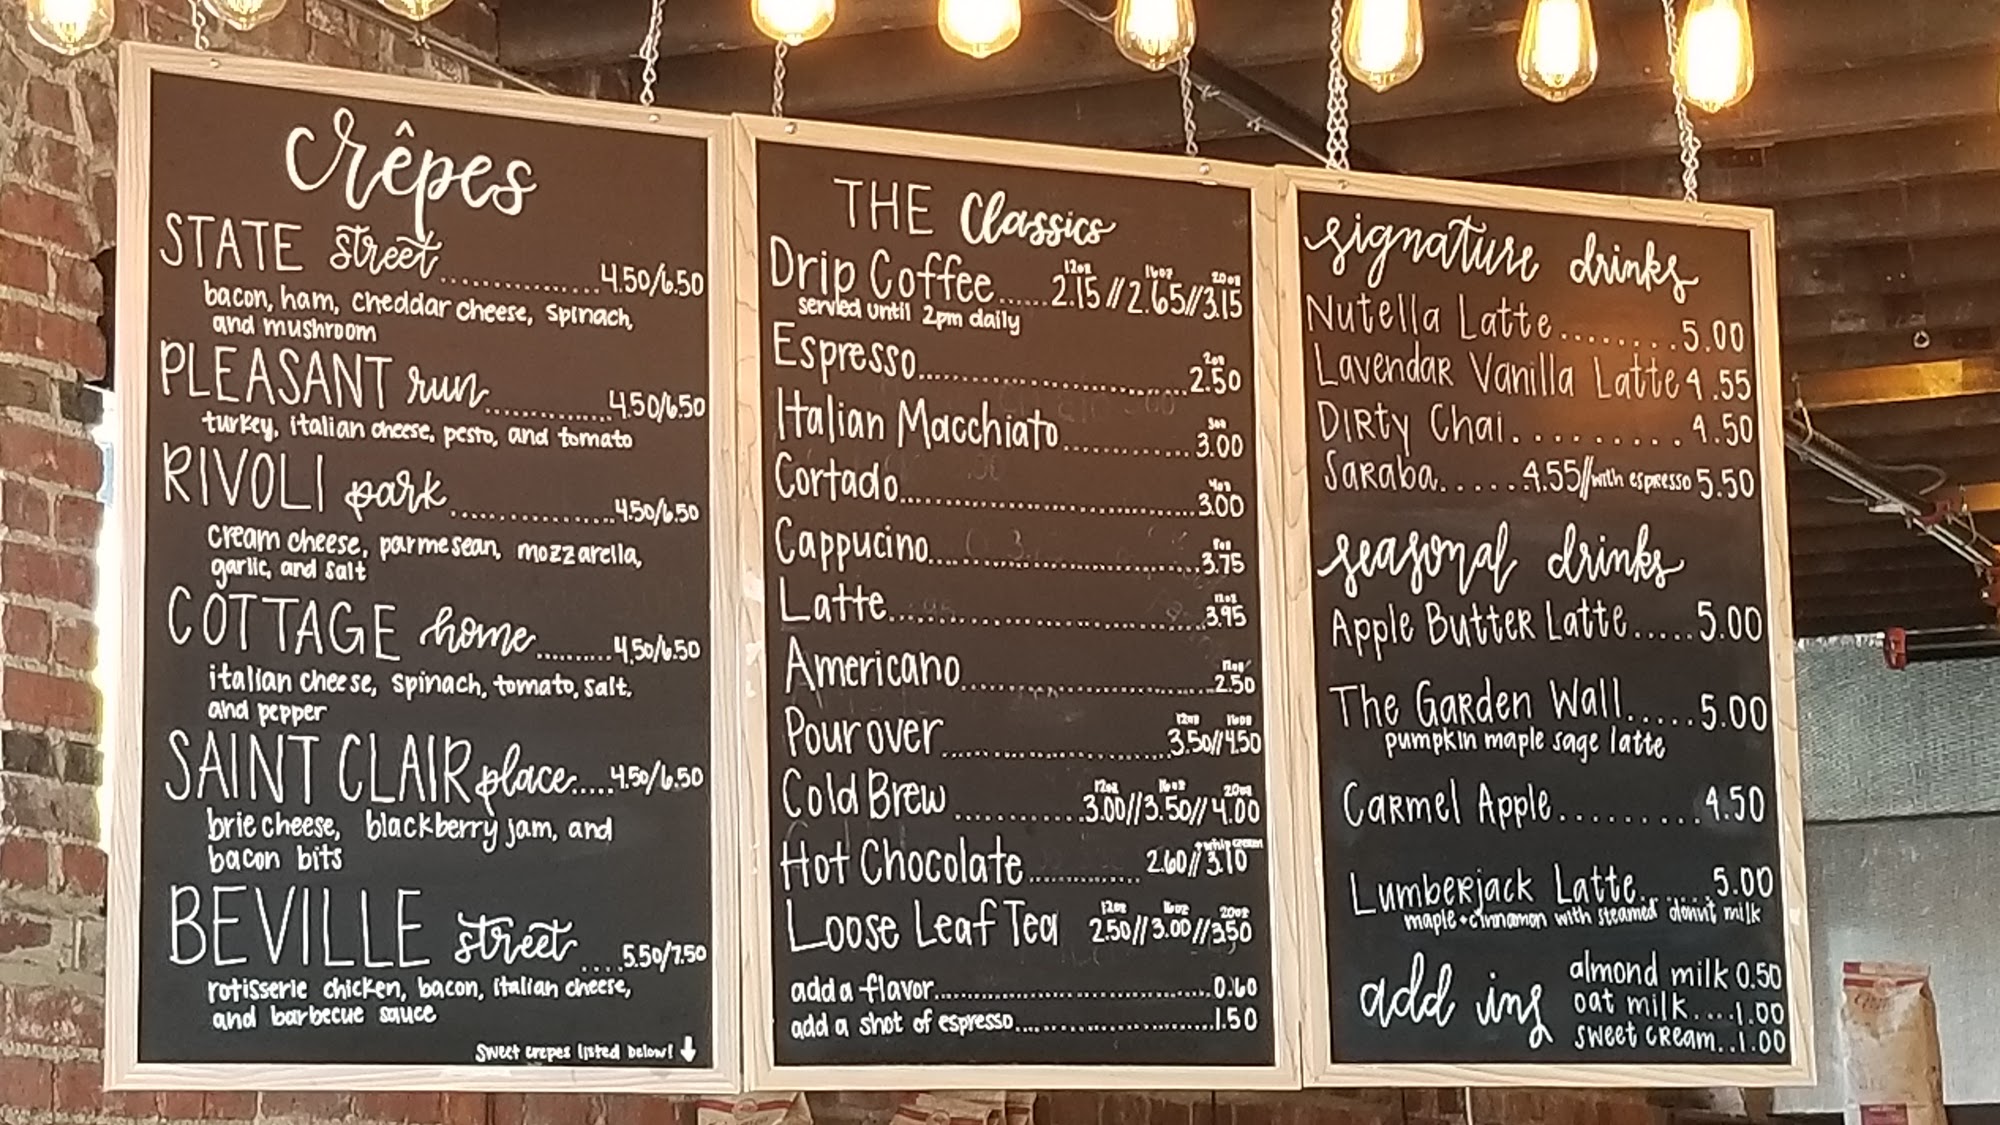 crêpes
STATE street..............4.50/6.50
bacon, ham, cheddar cheese, spinach,
and mushroom
PLEASANT run.............4.50/6.50
turkey, italian cheese, pesto, and tomato
RIVOLI park.................4.50/6.50
cream cheese, parmesean, mozzarella,
garlic, and salt
COTTAGE home..........4.50/6.50
italian cheese, spinach, tomato, salt,
and pepper
SAINT CLAIR place.....4.50/6.50
brie cheese, blackberry jam, and
bacon bits
BEVILLE street ....5.50/7.50
rotisserie chicken, bacon, italian cheese,
and barbecue sauce
Sweet crepes listed below! ↓
THE Classics
12oz 16oz 20oz
Drip Coffee......2.15//2.65//3.15
served until 2pm daily
2oz
Espresso..........................2.50
3oz
Italian Macchiato.............3.00
4oz
Cortado..............................3.00
8oz
Cappucino...........................3.75
12oz
Latte................................3.95
12oz
Americano..........................2.50
12oz 16oz
Pour over.......................3.50//4.50
12oz 16oz 20oz
Cold Brew ............3.00//3.50//4.00
+ whip cream
Hot Chocolate............2.60//3.10
12oz 16oz 20oz
Loose Leaf Tea 2.50//3.00//3.50
add a flavor....................................0.60
add a shot of espresso.........................1.50
signature drinks
Nutella Latte........5.00
Lavendar Vanilla Latte 4.55
Dirty Chai..........4.50
Saraba.....4.55//with espresso 5.50
seasonal drinks
Apple Butter Latte.....5.00
The Garden Wall.....5.00
pumpkin maple sage latte
Carmel Apple.........4.50
Lumberjack Latte......5.00
maple + cinnamon with steamed donut milk
add ins
almond milk 0.50
oat milk....1.00
sweet cream..1.00